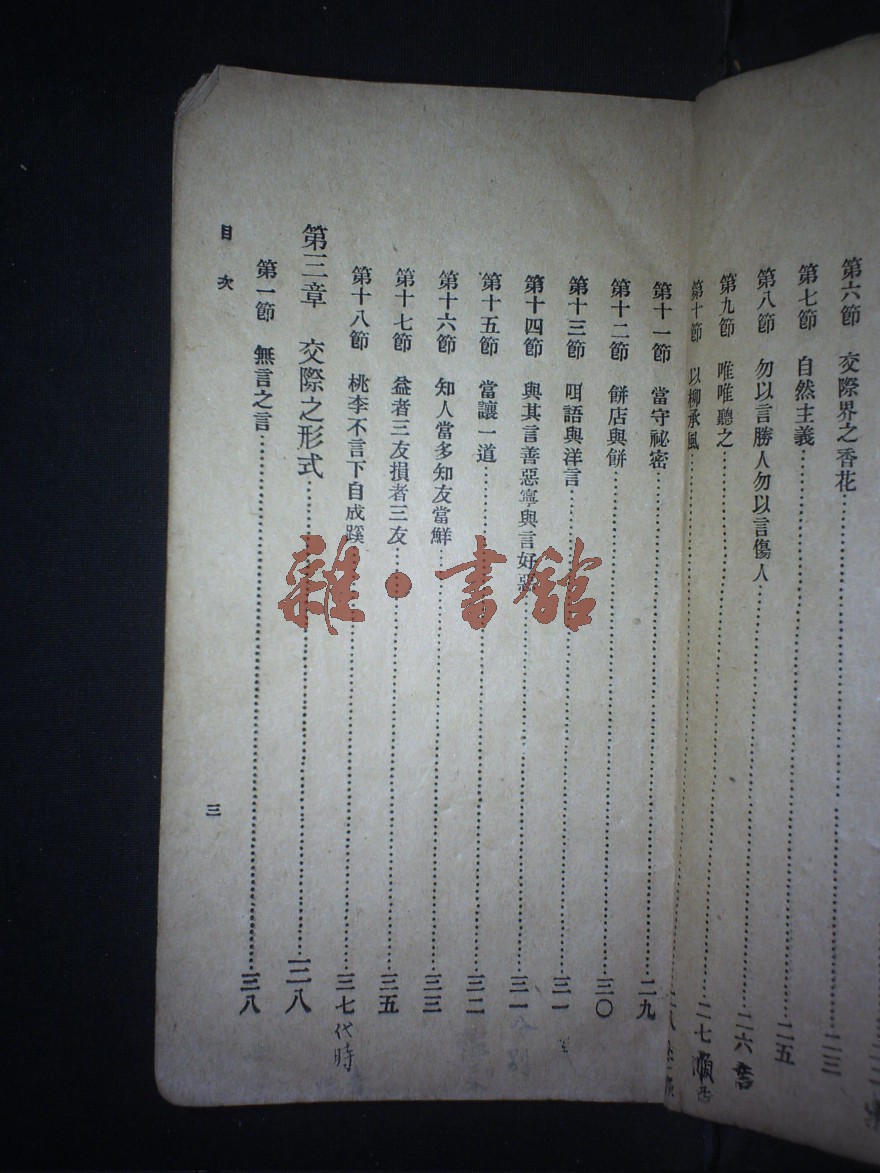 第六節　交際界之香花………二三
第七節　自然主義………二五
第八節　勿以言勝人勿以言傷人………二六
第九節　唯唯聽之………二七
第十節　以柳承風………二八
第十一節　當守祕密………二九
第十二節　餅店與餅………三〇
第十三節　咡語與洋言………三一
第十四節　與其言善惡寧與言好惡………三一
第十五節　當讓一道………三二
第十六節　知人當多知友當鮮………三三
第十七節　益者三友損者三友………三五
第十八節　桃李不言下自成蹊………三七
代時
第三章　交際之形式………三八
第一節　無言之言………三八
目次
三
雜・書館